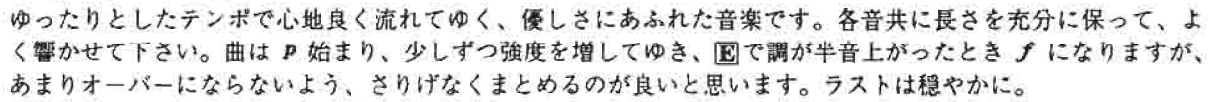 ゆったりとしたテンポで心地良く流れてゆく、優しさにあふれた音楽です。各音共に長さを充分に保って、よ
く響かせて下さい。曲は p 始まり、少しずつ強度を増してゆき、Eで調が半音上がったとき f になりますが、
あまりオーバーにならないよう、さりげなくまとめるのが良いと思います。ラストは穏やかに。